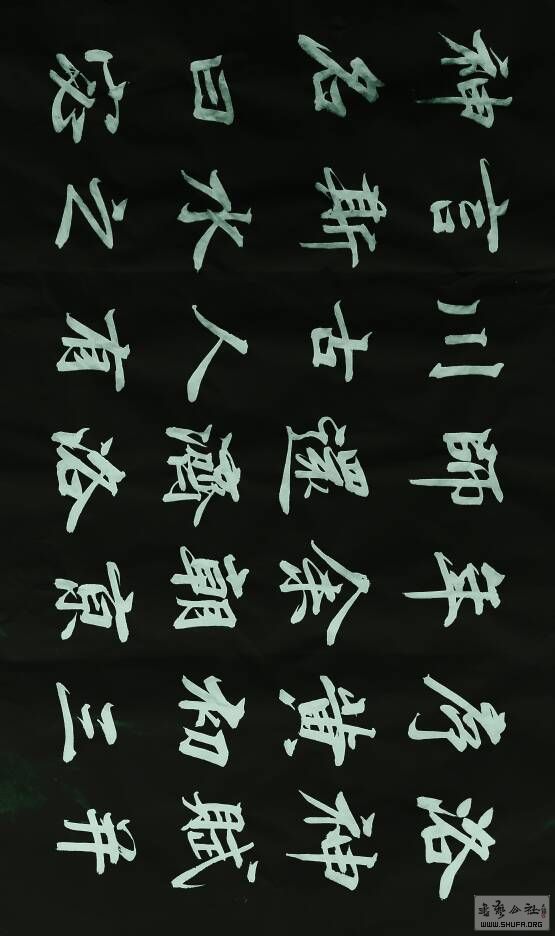 洛神賦并
序黃初三
年余朝京
師還濟洛
川古人有
言斯水之
神名曰宓
WWW.SHUFA.ORG